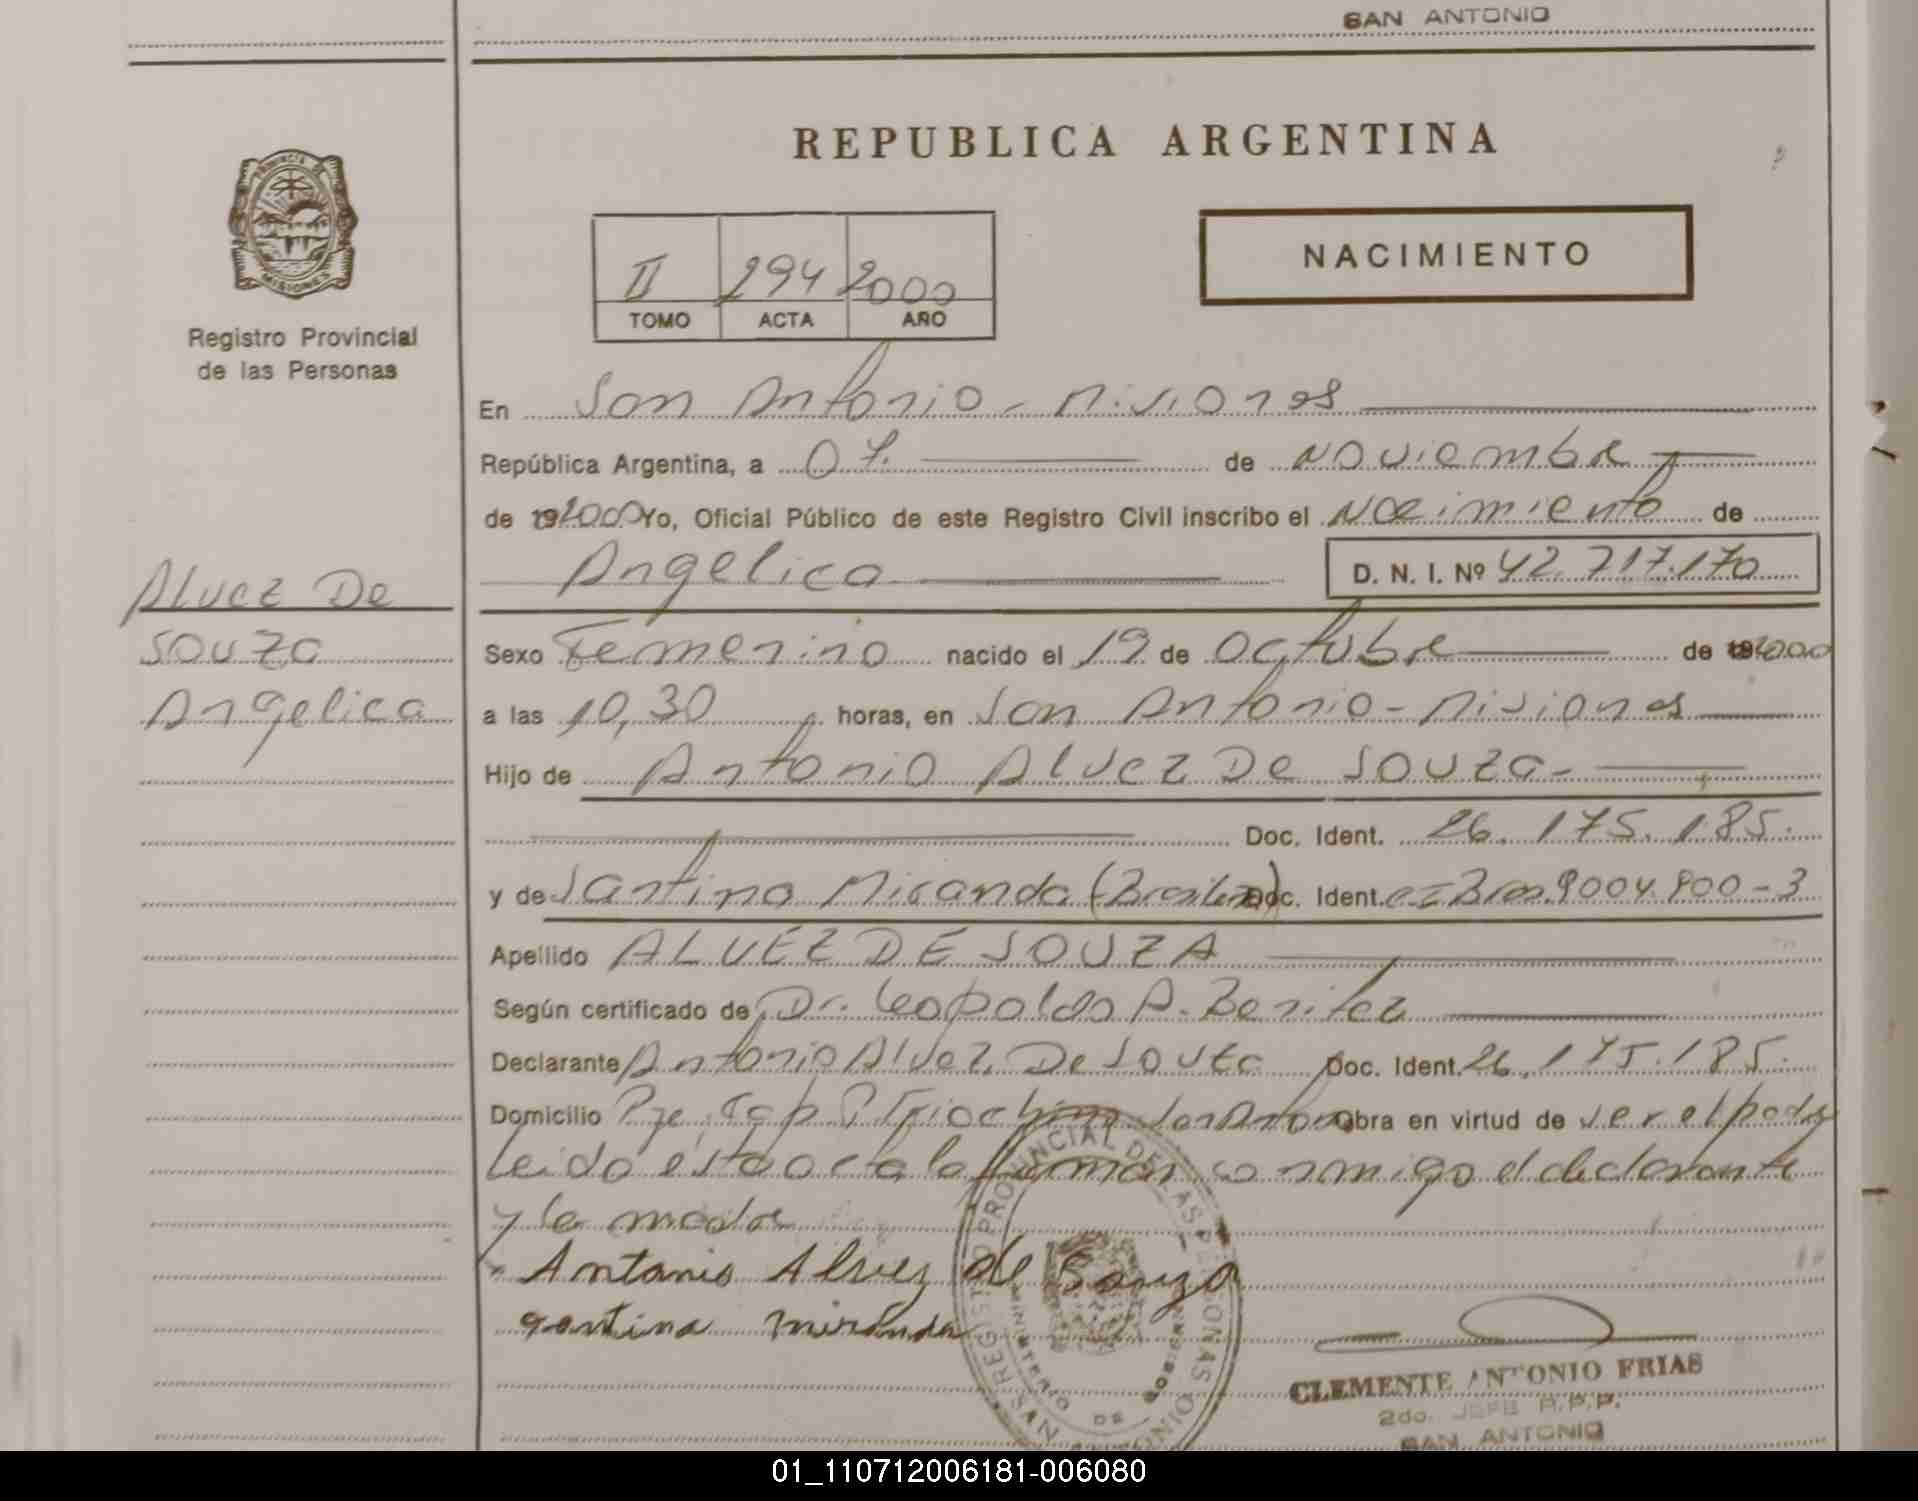 SAN ANTONIO
REPUBLICA ARGENTINA
PROVINCIA DE
MISIONES
Registro Provincial
de las Personas
II 294 2000
TOMO ACTA AÑO
NACIMIENTO
En San Antonio - Misiones
República Argentina, a 07. de Noviembre
de 19 2000 Yo, Oficial Público de este Registro Civil inscribo el Nacimiento de
Angelica D. N. I. Nº 42.717.170
Alvez De
Souza
Angelica
Sexo Femenino nacido el 19 de Octubre de 19 2000
a las 10,30 horas, en San Antonio - Misiones
Hijo de Antonio Alvez De Souza -
Doc. Ident. 26.175.185.
y de Santina Miranda (Brasilera) Doc. Ident. 9004.900-3
Apellido ALVEZ DE SOUZA
Según certificado de Dr. Leopoldo A. Benitez
Declarante Antonio Alvez De Souza Doc. Ident. 26.175.185.
Domicilio Pje. San Anton Obra en virtud de ser el padre
Leido esta acta la firman conmigo el declarante
y la madre
Antonio Alvez de Souza
santina miranda
REGISTRO PROVINCIAL DE LAS PERSONAS
MINISTERIO DE GOBIERNO
CLEMENTE ANTONIO FRIAS
2do. JEFE R.P.P.
SAN ANTONIO
01_110712006181-006080